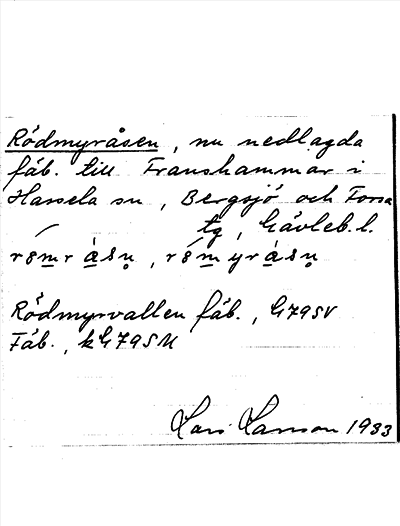 Rödmyråsen, nu nedlagda
fäb. till Franshammar i
Hassela sn, Bergsjö och Forsa
tg, Gävleb. l.
Rödmyrvallen fäb., G79SV
Fäb., kG79SU
Lars Larsson 1933